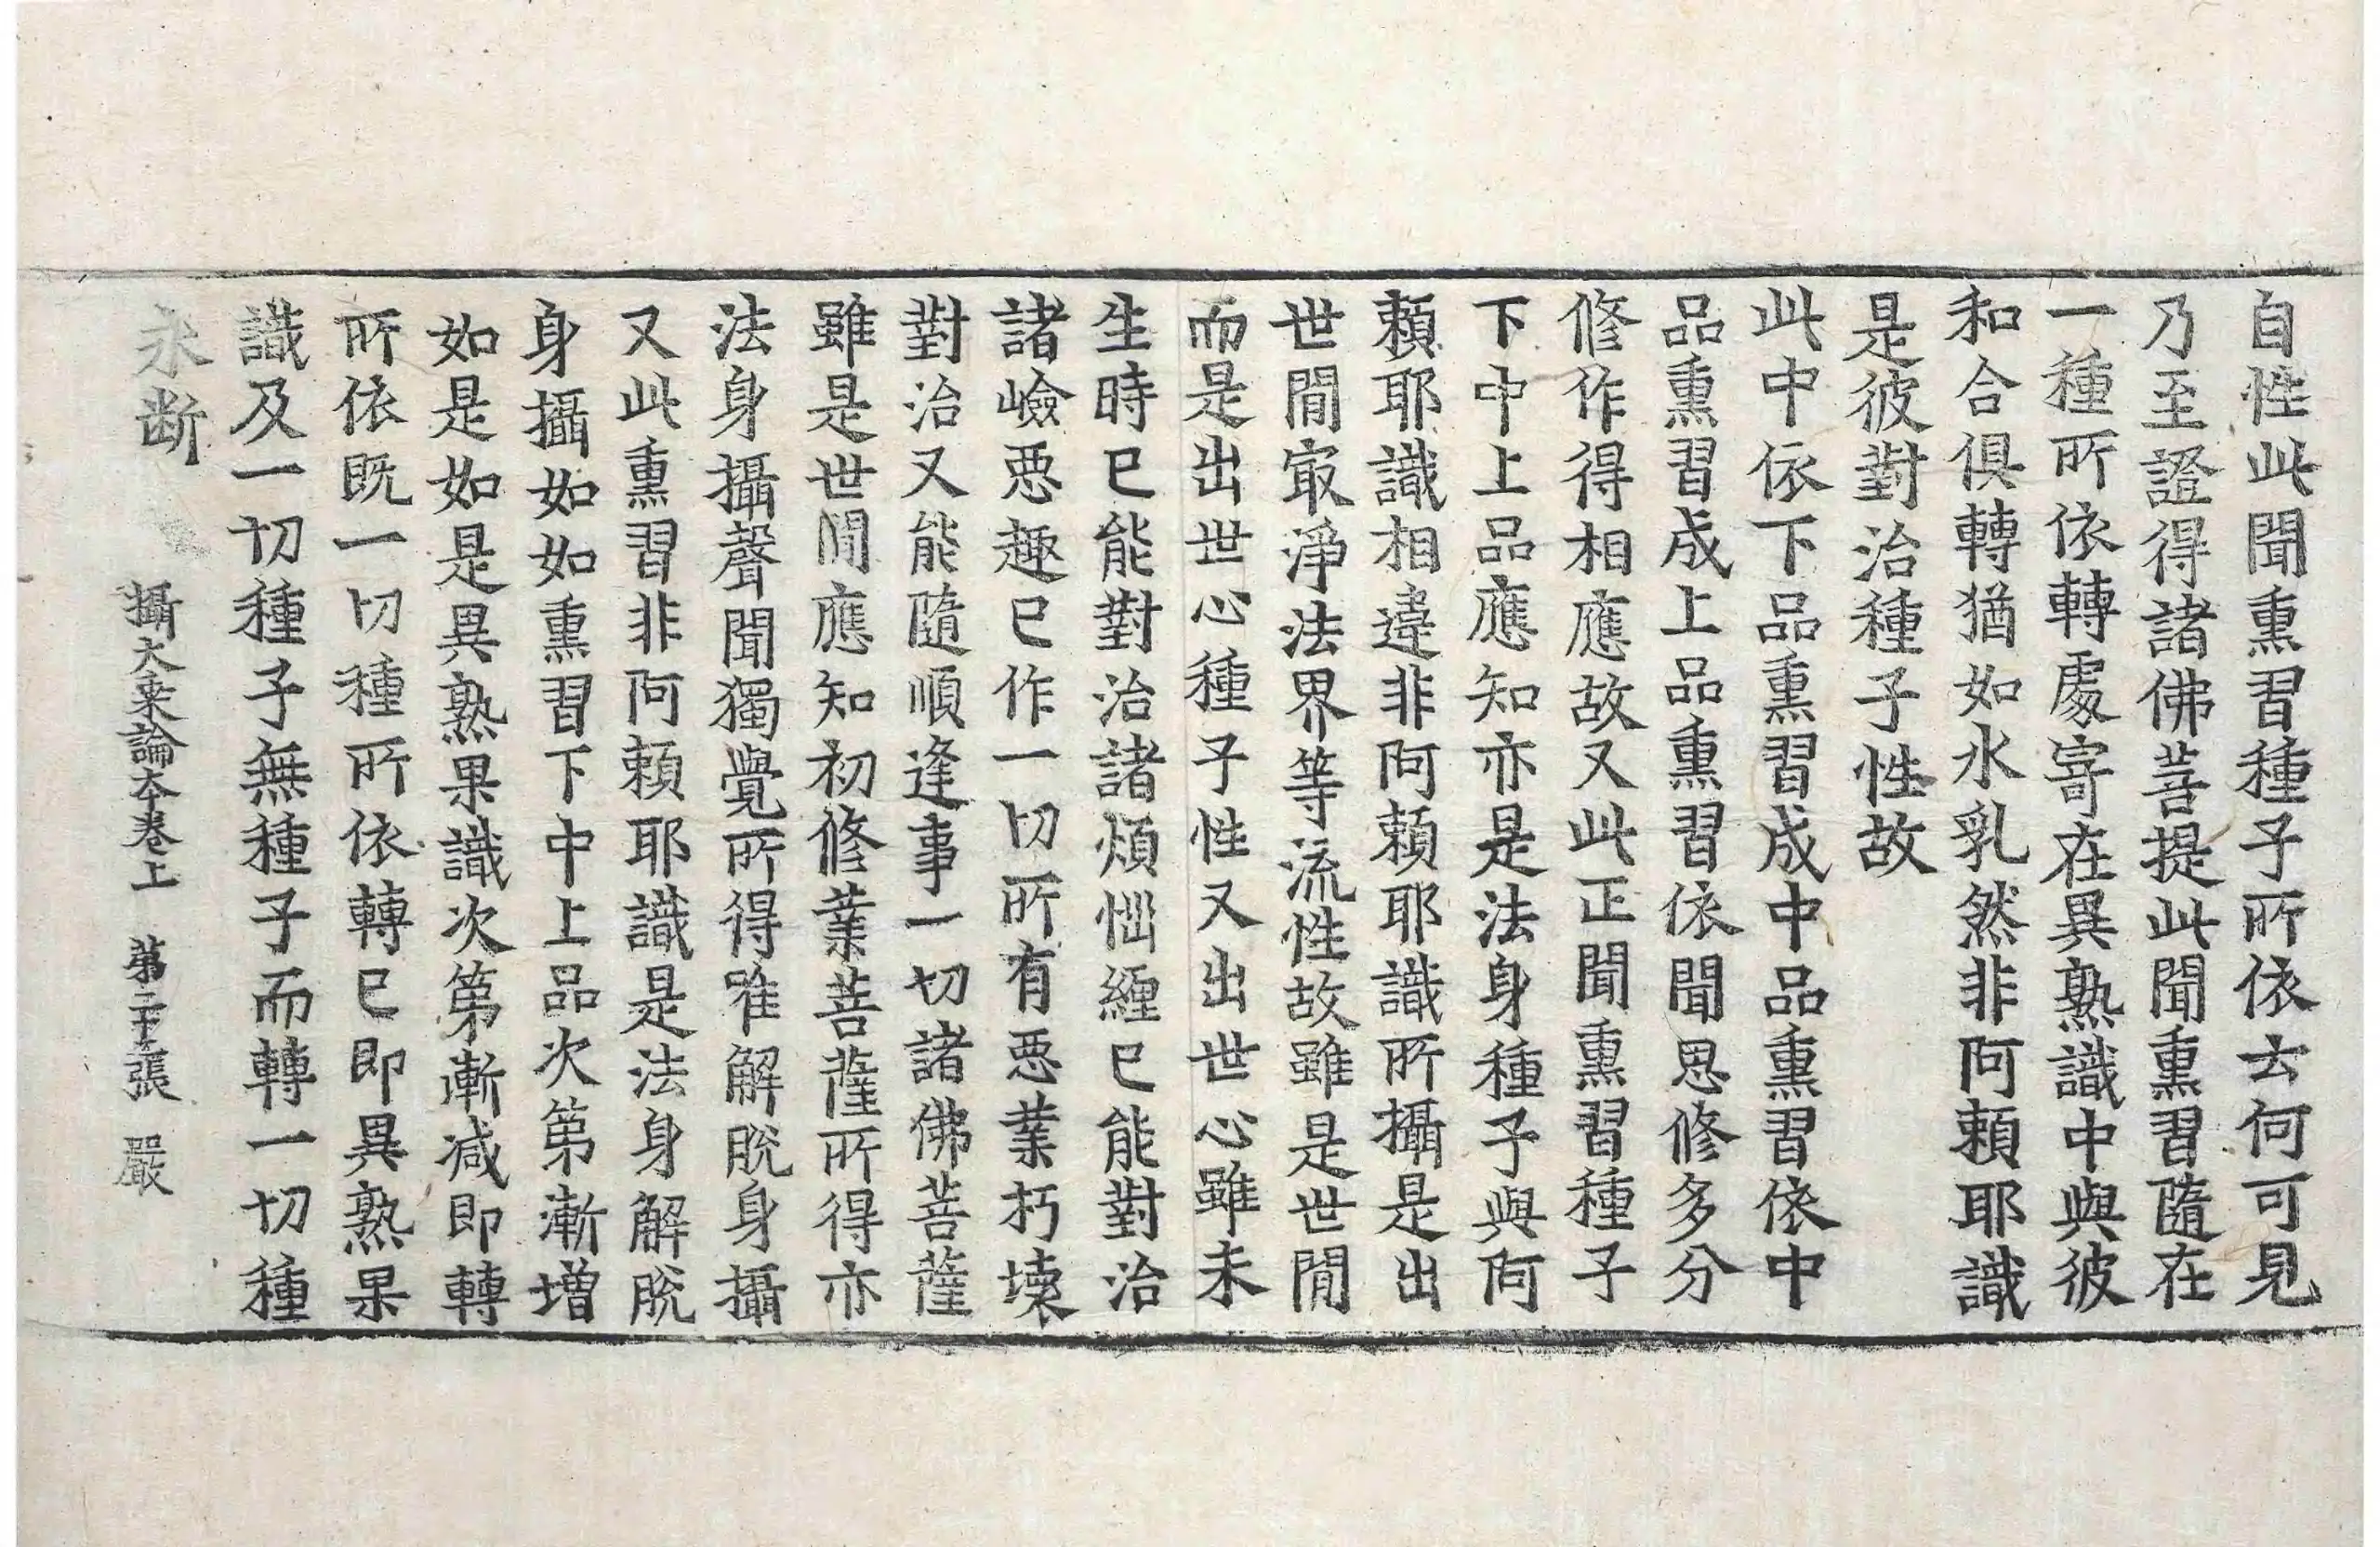 自性此聞熏習種子所依云何可見
乃至證得諸佛菩提此聞熏習隨在
一種所依轉處寄在異熟識中與彼
和合俱轉猶如水乳然非阿賴耶識
是彼對治種子性故
此中依下品熏習成中品熏習依中
品熏習成上品熏習依聞思修多分
修作得相應故又此正聞熏習種子
下中上品應知亦是法身種子與阿
賴耶識相違非阿賴耶識所攝是出
世閒㝡淨法界等流性故雖是世閒
而是出世心種子性又出世心雖未
生時已能對治諸煩惱纏已能對治
諸嶮惡趣已作一切所有惡業朽壞
對治又能隨順逢事一切諸佛菩薩
雖是世閒應知初修業菩薩所得亦
法身攝聲聞獨覺所得唯解脫身攝
又此熏習非阿賴耶識是法身解脫
身攝如如熏習下中上品次第漸增
如是如是異熟果識次第漸減即轉
所依既一切種所依轉已即異熟果
識及一切種子無種子而轉一切種
永斷
攝大乘論本卷上 第二十張 嚴